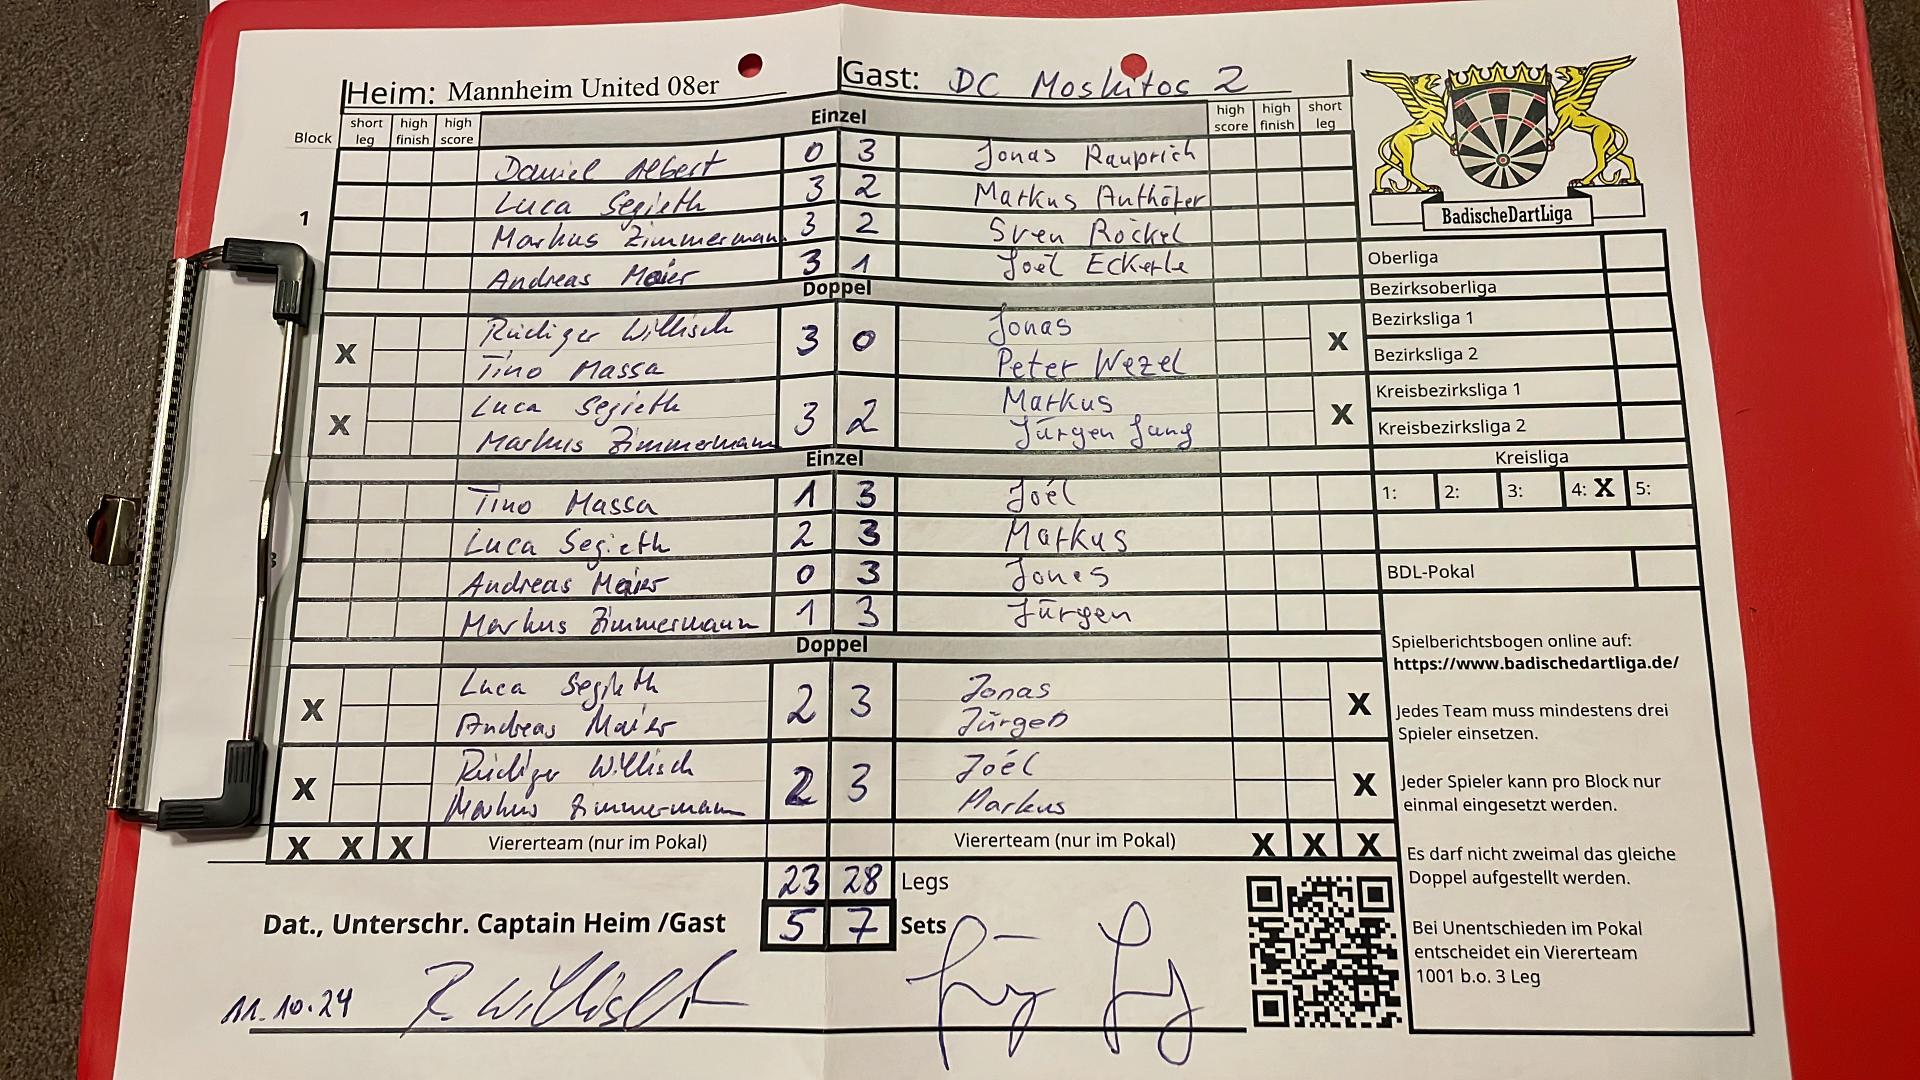 Heim: Mannheim United 08er Gast: DC Moskitos 2
Block short leg high finish high score Einzel high score high finish short leg
Daniel Albert 0 3 Jonas Rauprich
1 Luca Segieth 3 2 Markus Anthöfer
Markus Zimmermann 3 2 Sven Röckel
Andreas Maier 3 1 Joël Eckerle
Doppel
X Rüdiger Willisch 3 0 Jonas X
Tino Massa Peter Wezel
X Luca Segieth 3 2 Markus X
Markus Zimmermann Jürgen Jung
Einzel
Tino Massa 1 3 Joél
Luca Segieth 2 3 Markus
Andreas Maier 0 3 Jonas
Markus Zimmermann 1 3 Jürgen
Doppel
X Luca Segieth 2 3 Jonas X
Andreas Maier Jürgen
X Rüdiger Willisch 2 3 Joél X
Markus Zimmermann Markus
X X X Viererteam (nur im Pokal) Viererteam (nur im Pokal) X X X
23 28 Legs
Dat., Unterschr. Captain Heim /Gast 5 7 Sets
11.10.24 R. Willisch
BadischeDartLiga
Oberliga
Bezirksoberliga
Bezirksliga 1
Bezirksliga 2
Kreisbezirksliga 1
Kreisbezirksliga 2
Kreisliga
1: 2: 3: 4: X 5:
BDL-Pokal
Spielberichtsbogen online auf:
https://www.badischedartliga.de/
Jedes Team muss mindestens drei
Spieler einsetzen.
Jeder Spieler kann pro Block nur
einmal eingesetzt werden.
Es darf nicht zweimal das gleiche
Doppel aufgestellt werden.
Bei Unentschieden im Pokal
entscheidet ein Viererteam
1001 b.o. 3 Leg